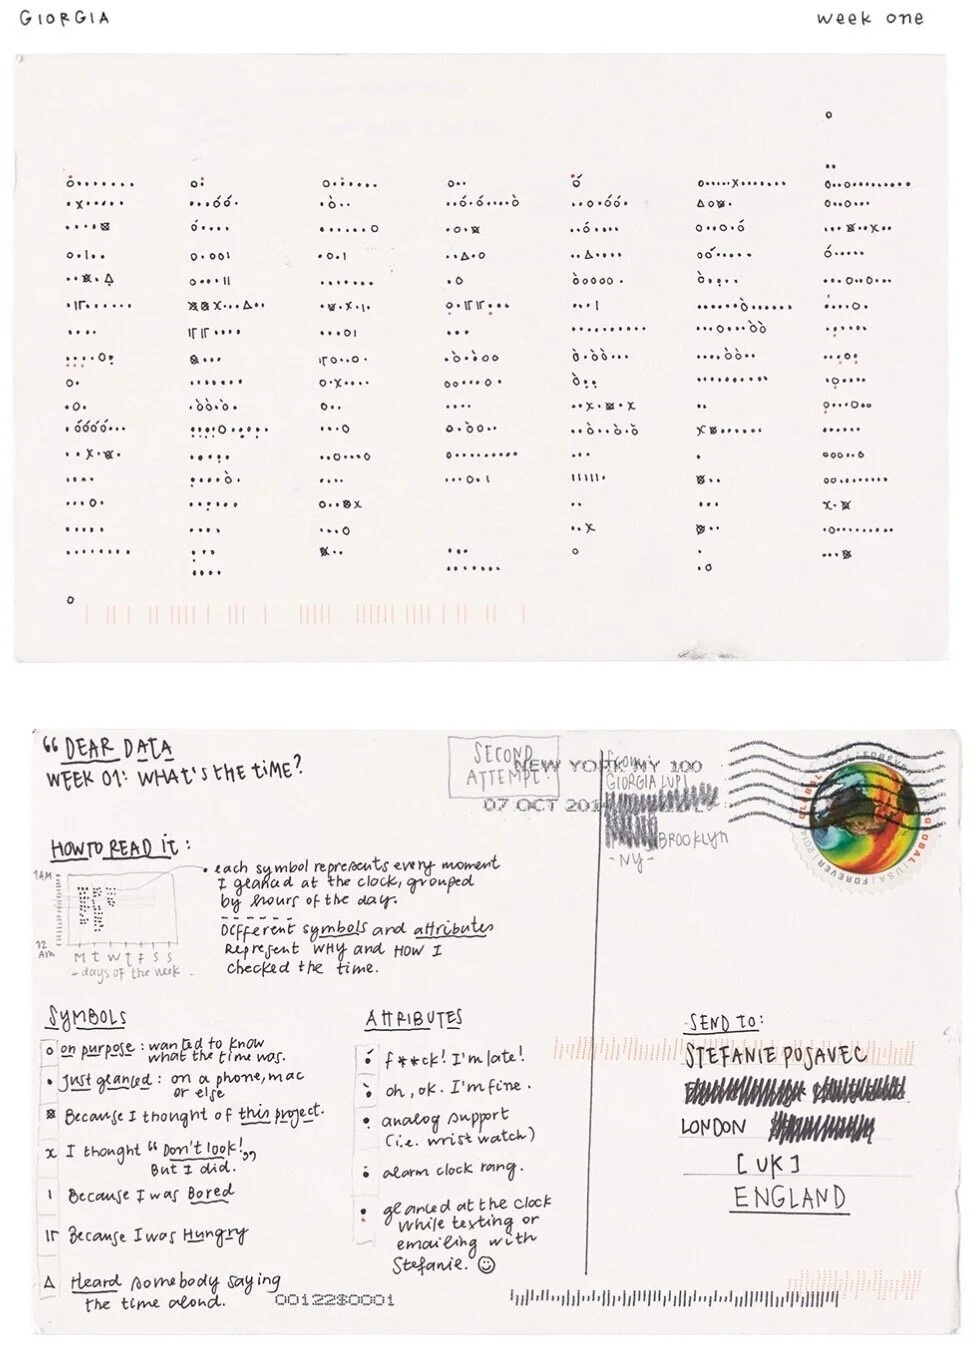 GIORGIA
week one
“DEAR DATA
WEEK 01: WHAT'S THE TIME?
SECOND
ATTEMPT!
NEW YORK NY 100
07 OCT 201
From:
GIORGIA LUPI
BROOKLYN
-NY-
GLOBAL
FOREVER
GLOBAL
USA
FOREVER
HOW TO READ IT:
1AM
12
AM
M T W T F S S
- days of the week.
each symbol represents every moment
I glanced at the clock, grouped
by hours of the day.
Different symbols and attributes
Represent WHY and HOW I
checked the time.
SYMBOLS
on purpose: wanted to know
what the time was.
Just glanced: on a phone, mac
or else
Because I thought of this project.
I thought “Don't look!”
But I did.
Because I was Bored
Because I was Hungry
Heard somebody saying
the time aloud.
ATTRIBUTES
f**ck! I'm late!
oh, ok. I'm fine.
analog support
(i.e. wrist watch)
alarm clock rang.
glanced at the clock
while texting or
emailing with
Stefanie. ☺
SEND TO:
STEFANIE POSAVEC
LONDON
[UK]
ENGLAND
00122$0001